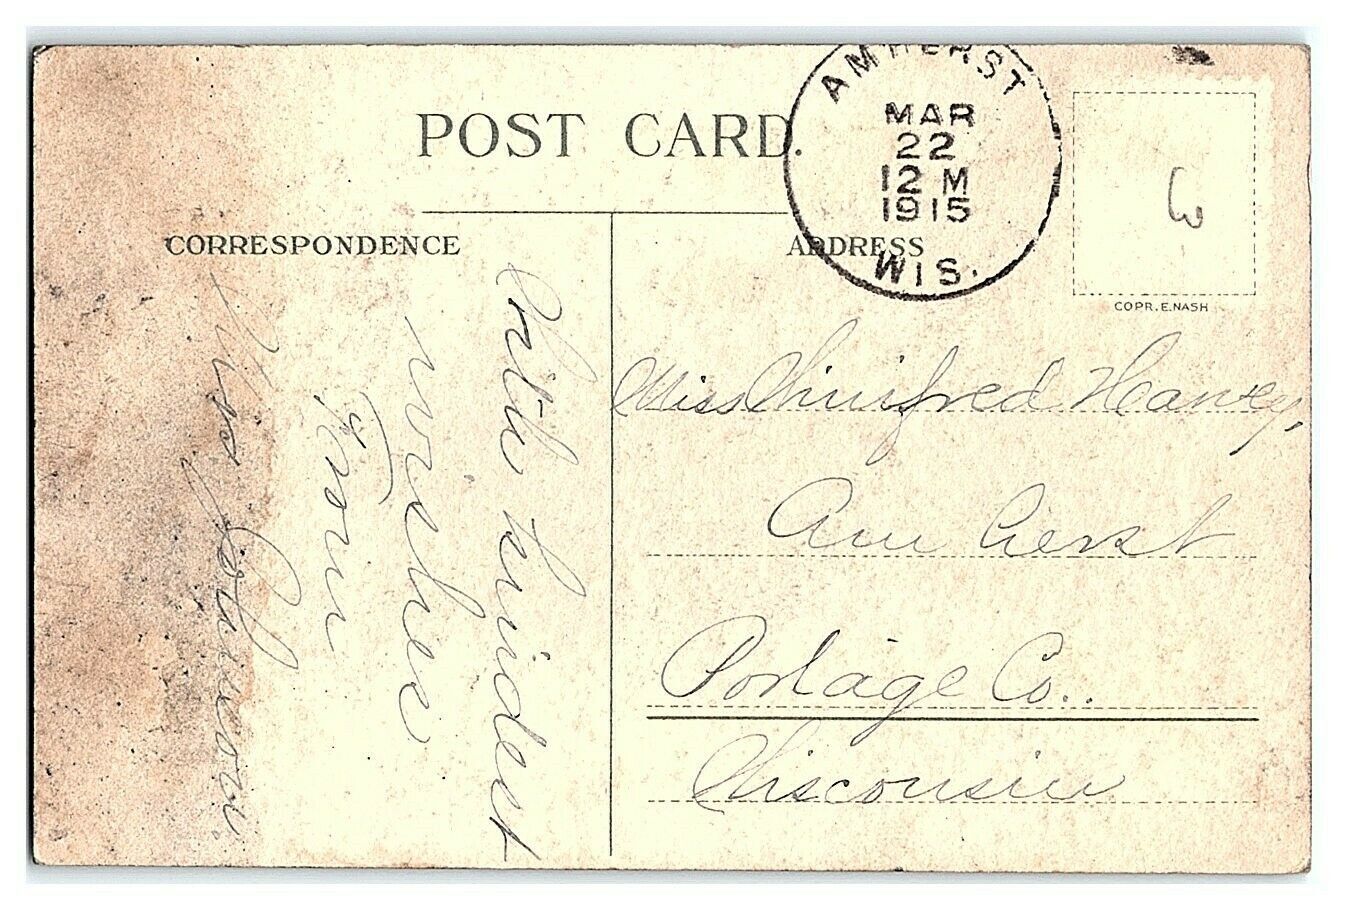 POST CARD.
AMHERST
MAR
22
12 M
1915
WIS.
CORRESPONDENCE
ADDRESS
COPR. E. NASH
With kindest
wishes
from
Miss Johnson.
Miss Winifred Harvey,
Amherst
Portage Co..
Wisconsin